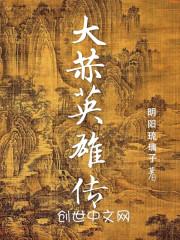 大恭英雄传
阴阳琉璃子 著
创世中文网